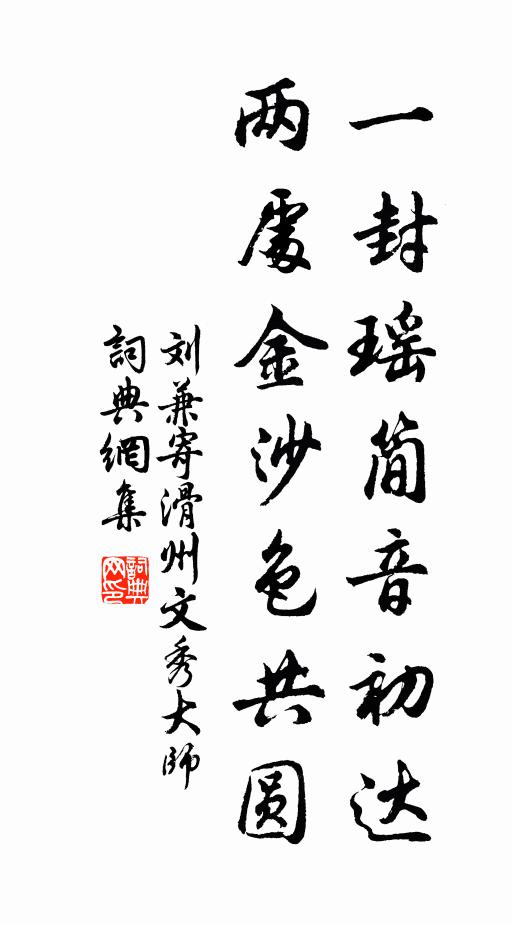 一封瑶简音初达
两处金沙色共圆
刘兼寄滑州文秀大师
詞典網集
詞典
网印